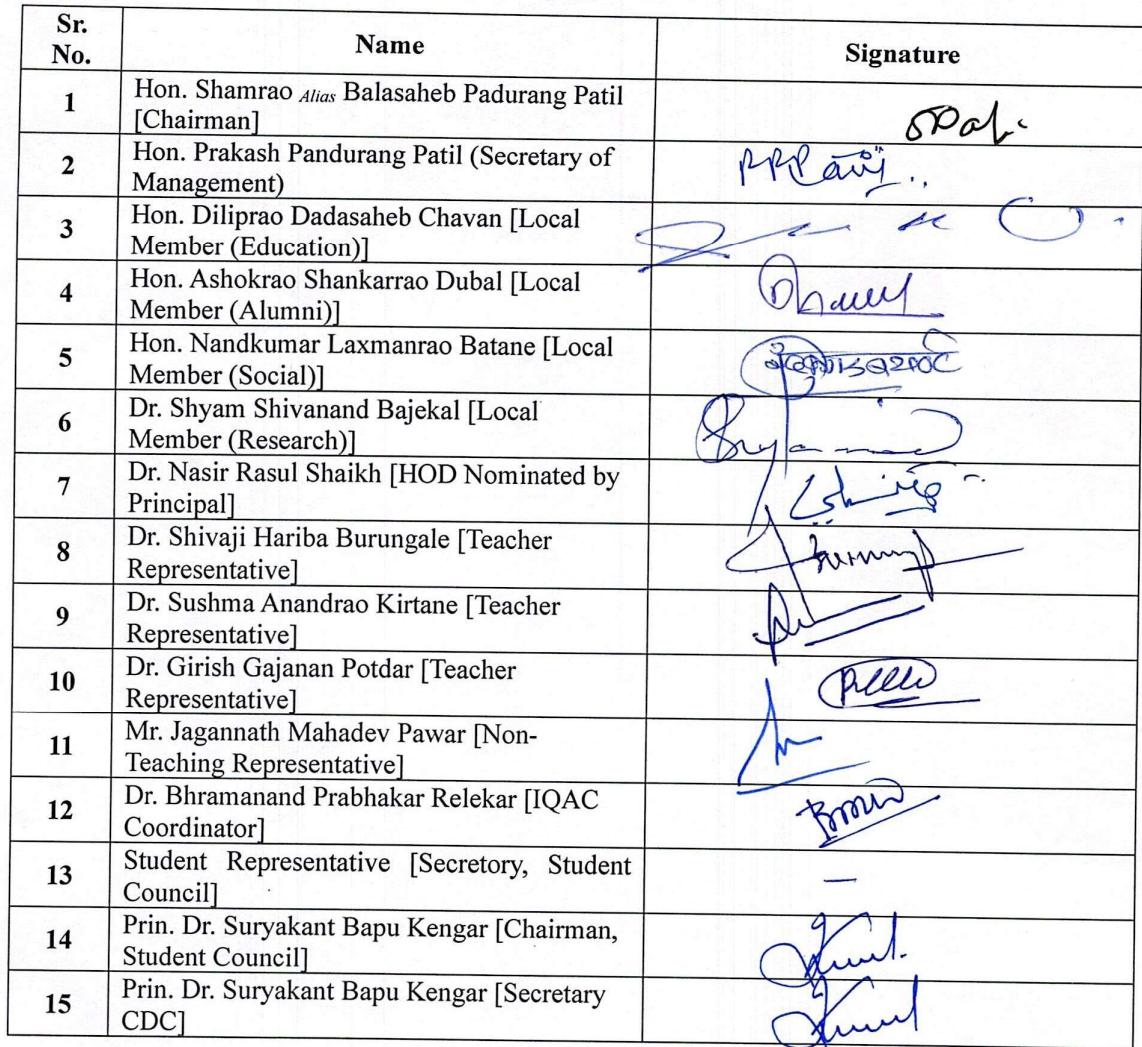 Sr. No. Name Signature
1 Hon. Shamrao Alias Balasaheb Padurang Patil
[Chairman]
2 Hon. Prakash Pandurang Patil (Secretary of
Management)
3 Hon. Diliprao Dadasaheb Chavan [Local
Member (Education)]
4 Hon. Ashokrao Shankarrao Dubal [Local
Member (Alumni)]
5 Hon. Nandkumar Laxmanrao Batane [Local
Member (Social)]
6 Dr. Shyam Shivanand Bajekal [Local
Member (Research)]
7 Dr. Nasir Rasul Shaikh [HOD Nominated by
Principal]
8 Dr. Shivaji Hariba Burungale [Teacher
Representative]
9 Dr. Sushma Anandrao Kirtane [Teacher
Representative]
10 Dr. Girish Gajanan Potdar [Teacher
Representative]
11 Mr. Jagannath Mahadev Pawar [Non-
Teaching Representative]
12 Dr. Bhramanand Prabhakar Relekar [IQAC
Coordinator]
13 Student Representative [Secretory, Student
Council] –
14 Prin. Dr. Suryakant Bapu Kengar [Chairman,
Student Council]
15 Prin. Dr. Suryakant Bapu Kengar [Secretary
CDC]